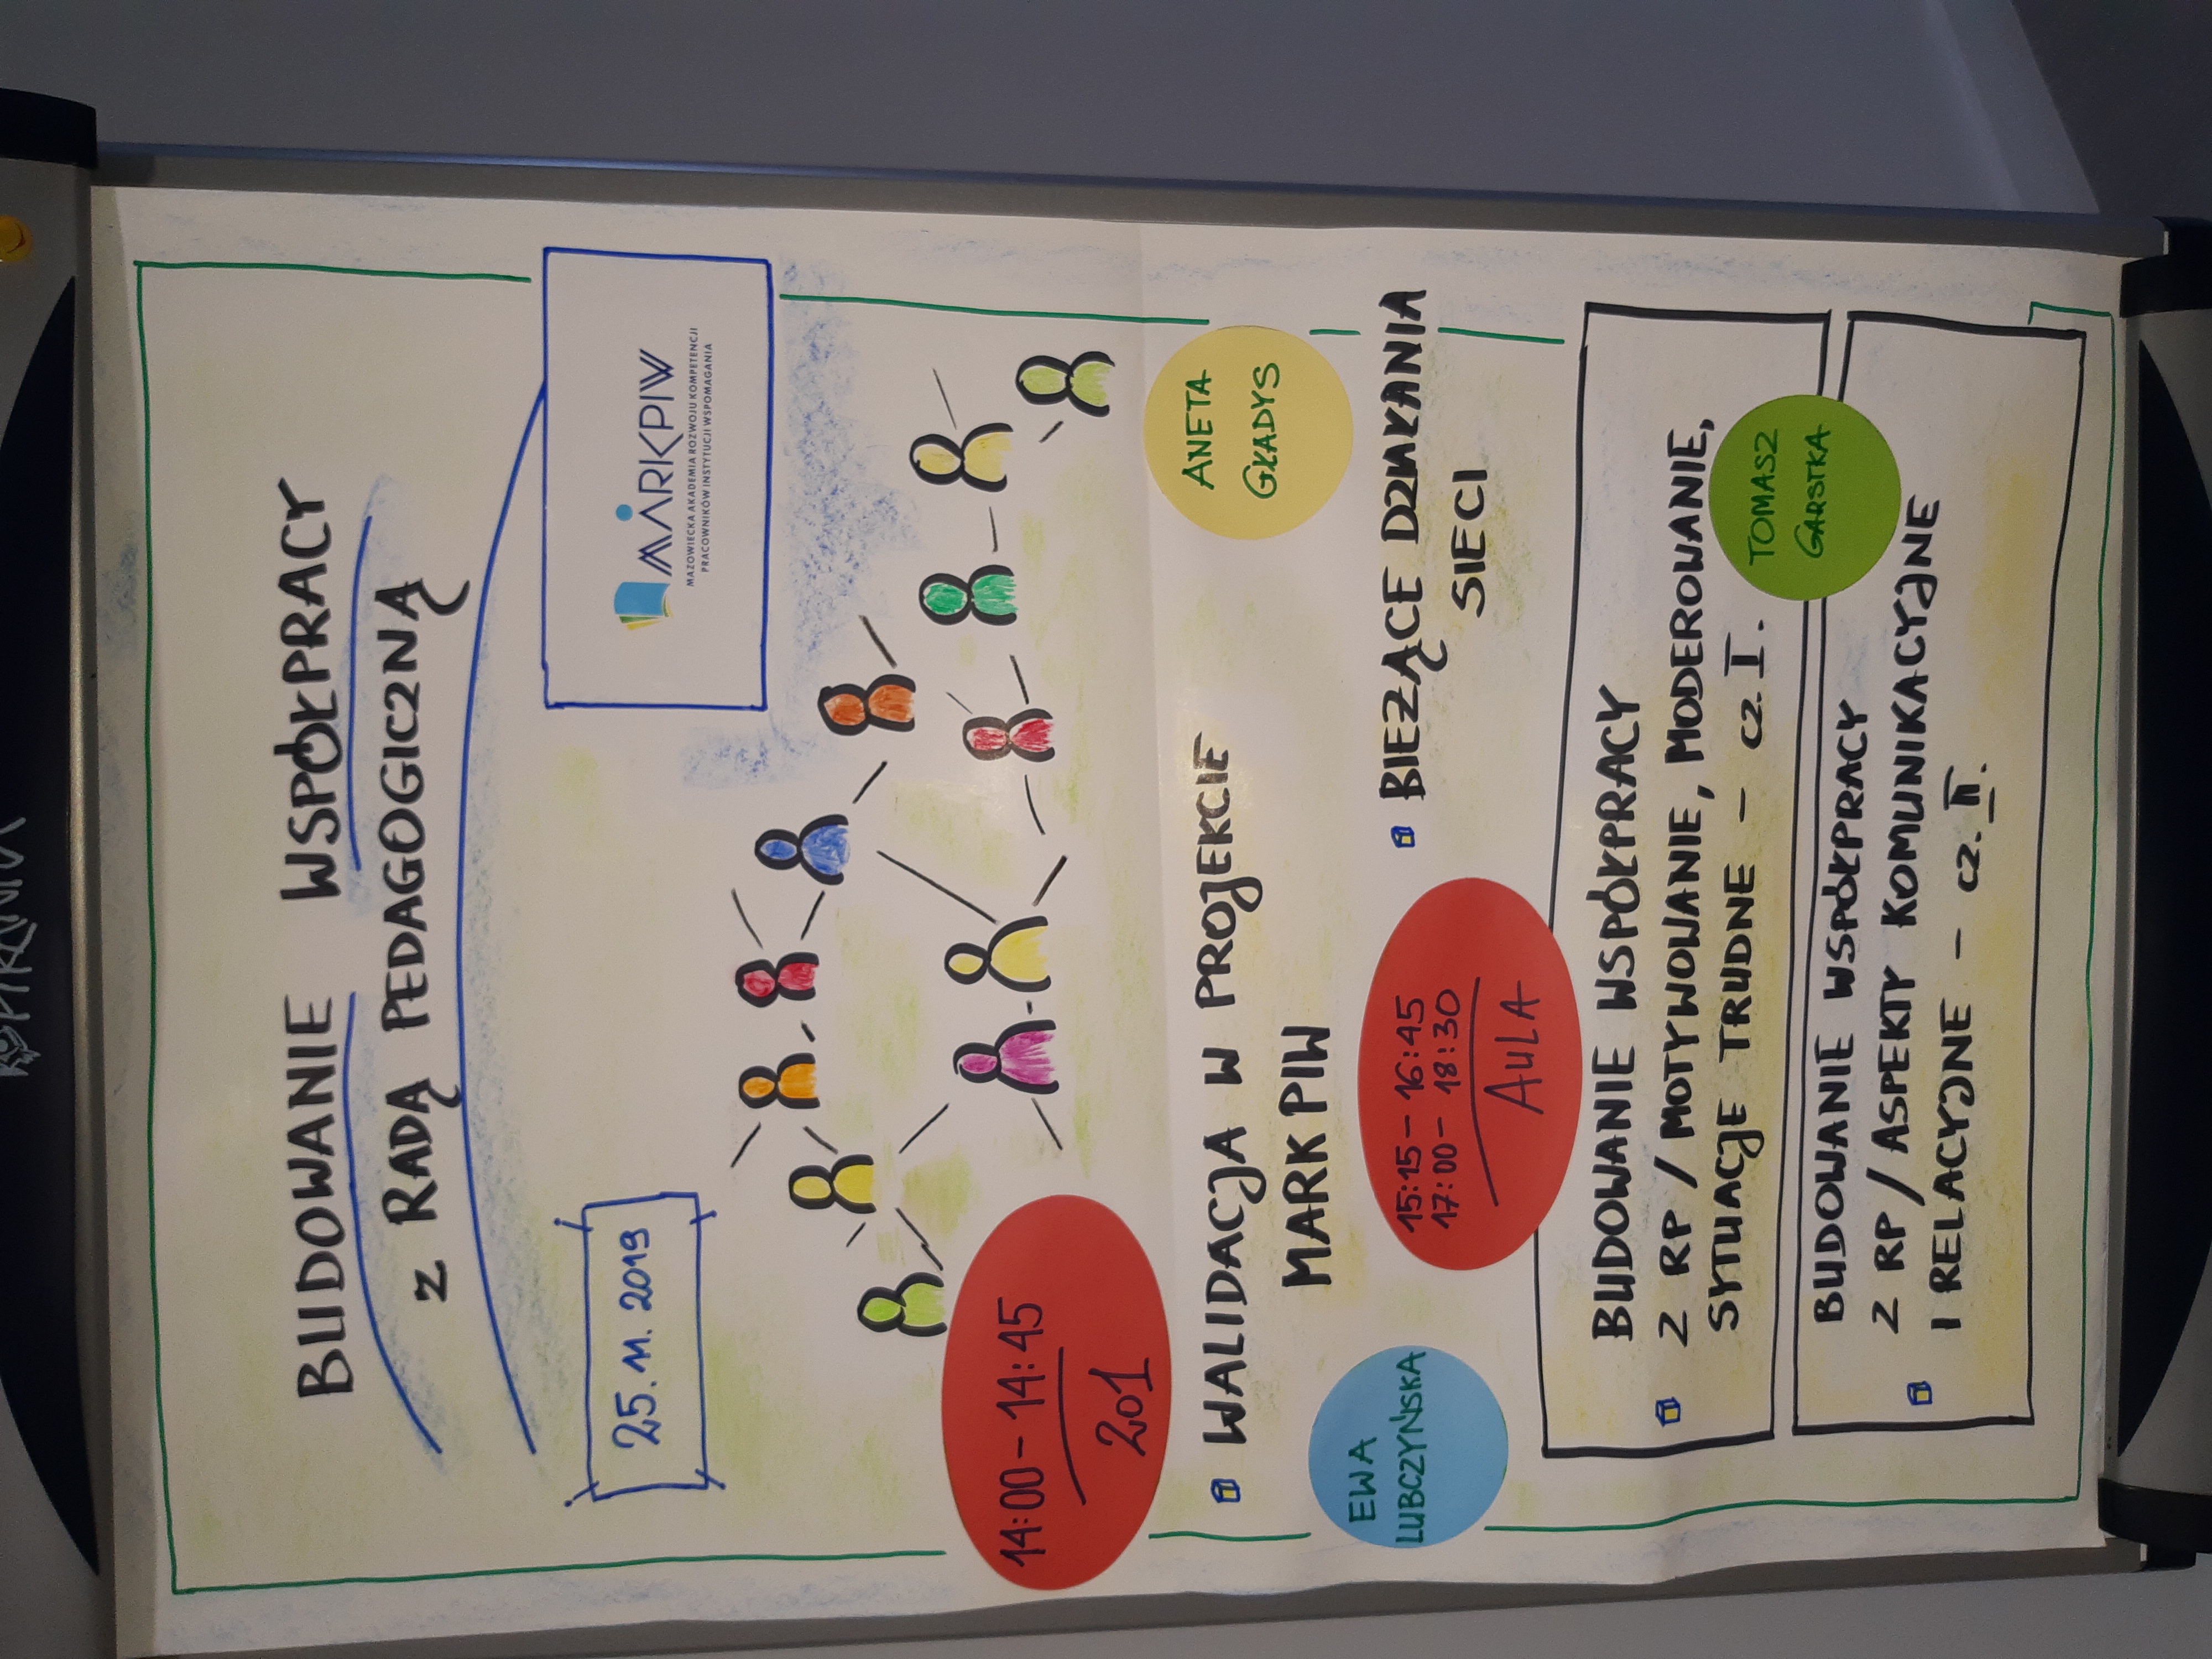 BUDOWANIE WSPÓŁPRACY
Z RADĄ PEDAGOGICZNĄ
25.11.2019
MARKPIW
MAZOWIECKA AKADEMIA ROZWOJU KOMPETENCJI
PRACOWNIKÓW INSTYTUCJI WSPOMAGANIA
14:00 - 14:45
201
ANETA
GŁADYS
WALIDACJA W PROJEKCIE
MARKPIW
EWA
LUBCZYŃSKA
BIEZĄCE DZIAŁANIA
SIECI
15:15 - 16:45
17:00 - 18:30
AULA
BUDOWANIE WSPÓŁPRACY
Z RP / MOTYWOWANIE, MODEROWANIE,
SYTUACJE TRUDNE - CZ. I.
TOMASZ
GARSTKA
BUDOWANIE WSPÓŁPRACY
Z RP / ASPEKTY KOMUNIKACYJNE
I RELACYJNE - CZ. II.